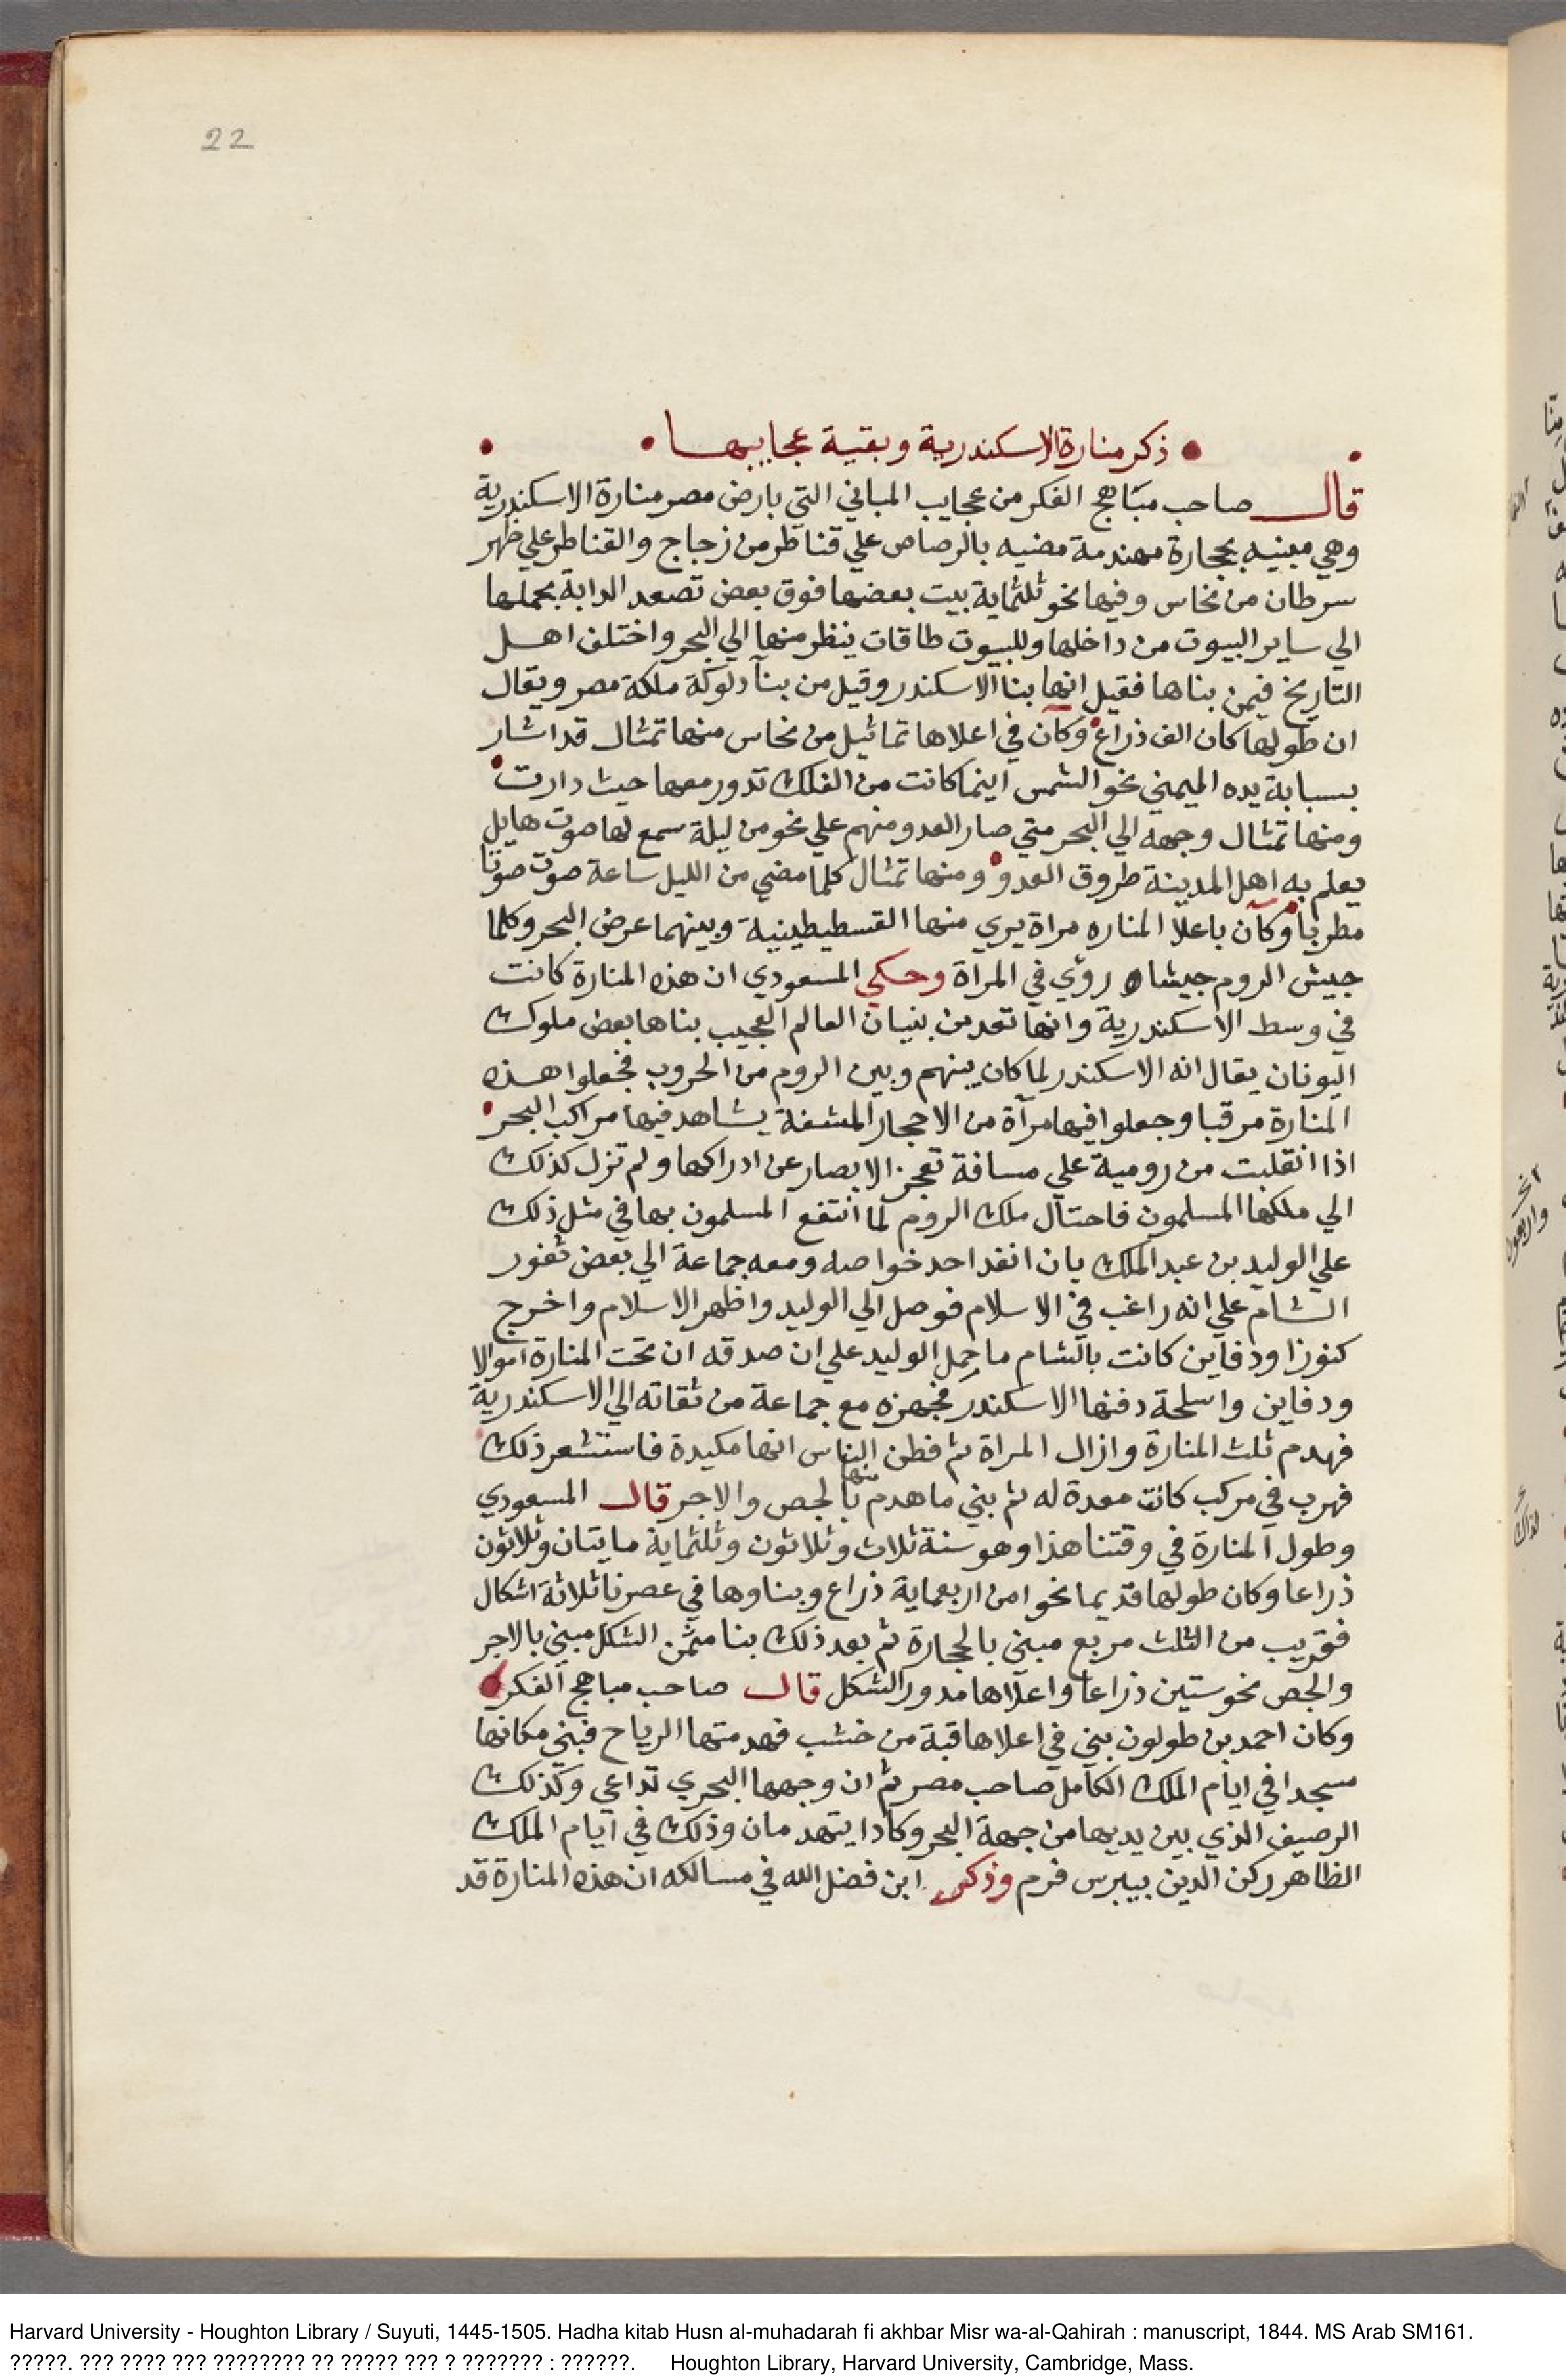 22
ذكر منارة الاسكندرية وبقية عجايبها
قال صاحب مباهج الفكر من عجايب المباني التي بارض مصر منارة الاسكندرية
وهي مبنيه بحجارة مهندمة مضبه بالرصاص علي قناطر من زجاج والقناطر علي ظهر
سرطان من نحاس وفيها نحو ثلثماية بيت بعضها فوق بعض تصعد الدابة بحملها
الي ساير البيوت من داخلها وللبيوت طاقات ينظر منها الي البحر واختلف اهل
التاريخ فيمن بناها فقيل انها بنا الاسكندر وقيل من بنآ دلوكة ملكة مصر ويقال
ان طولها كان الف ذراع وكان في اعلاها تماثيل من نحاس منها تمثال قد اشار
بسبابة يده اليمني نحو الشمس اينما كانت من الفلك تدور معها حيث دارت
ومنها تمثال وجهه الي البحر متي صار العدو منهم علي نحو من ليلة سمع لها صوت هايل
يعلم به اهل المدينة طروق العدو ومنها تمثال كلما مضي من الليل ساعة صوت صوتا
مطربا وكان باعلا المناره مراة يري منها القسطيطينية وبينهما عرض البحر وكلما
جيش الروم جيشا رؤي في المرآة وحكي المسعودي ان هذه المنارة كانت
في وسط الاسكندرية وانها تعد من بنيان العالم العجيب بناها بعض ملوك
اليونان يقال انه الاسكندر لما كان بينهم وبين الروم من الحروب فجعلوا هذه
المنارة مرقبا وجعلوا فيها مرآة من الاحجار المشفة يشاهد فيها مراكب البحر
اذا انقلبت من رومية علي مسافة تعجز الابصار عن ادراكها ولم تزل كذلك
الي ملكها المسلمون فاحتال ملك الروم لما انتفع المسلمون بها في مثل ذلك
علي الوليد بن عبد الملك بان انفد احد خواصه ومعه جماعة الي بعض ثغور
الشام علي انه راغب في الاسلام فوصل الي الوليد واظهر الاسلام واخرج
كنوزا ودفاين كانت بالشام ما حمل الوليد علي ان صدقه ان تحت المنارة اموالا
ودفاين واسلحة دفنها الاسكندر فجهزه مع جماعة من ثقاته الي الاسكندرية
فهدم ثلث المنارة وازال المراة ثم فطن الناس انها مكيدة فاستشعر ذلك
فهرب في مركب كانت معدة له ثم بني ما هدم منها بالجص والاجر قال المسعودي
وطول المنارة في وقتنا هذا وهو سنة ثلاث وثلاثون وثلثماية مايتان وثلاثون
ذراعا وكان طولها قديما نحوا من اربعماية ذراع وبناوها في عصرنا ثلاثة اشكال
فقريب من الثلث مربع مبني بالحجارة ثم بعد ذلك بنا مثمن الشكل مبني بالاجر
والجص نحو ستين ذراعا واعلاها مدور الشكل قال صاحب مباهج الفكر
وكان احمد بن طولون بني في اعلاها قبة من خشب فهدمتها الرياح فبني مكانها
مسجدا في ايام الملك الكامل صاحب مصر ثم ان وجهها البحري تداعي وكذلك
الرصيف الذي بين يديها من جهة البحر وكادا يتهدمان وذلك في ايام الملك
الظاهر ركن الدين بيبرس فرم وذكر ابن فضل الله في مسالكه ان هذه المنارة قد
Harvard University - Houghton Library / Suyuti, 1445-1505. Hadha kitab Husn al-muhadarah fi akhbar Misr wa-al-Qahirah : manuscript, 1844. MS Arab SM161.
?????. ??? ???? ??? ???????? ?? ????? ??? ? ??????? : ??????. Houghton Library, Harvard University, Cambridge, Mass.